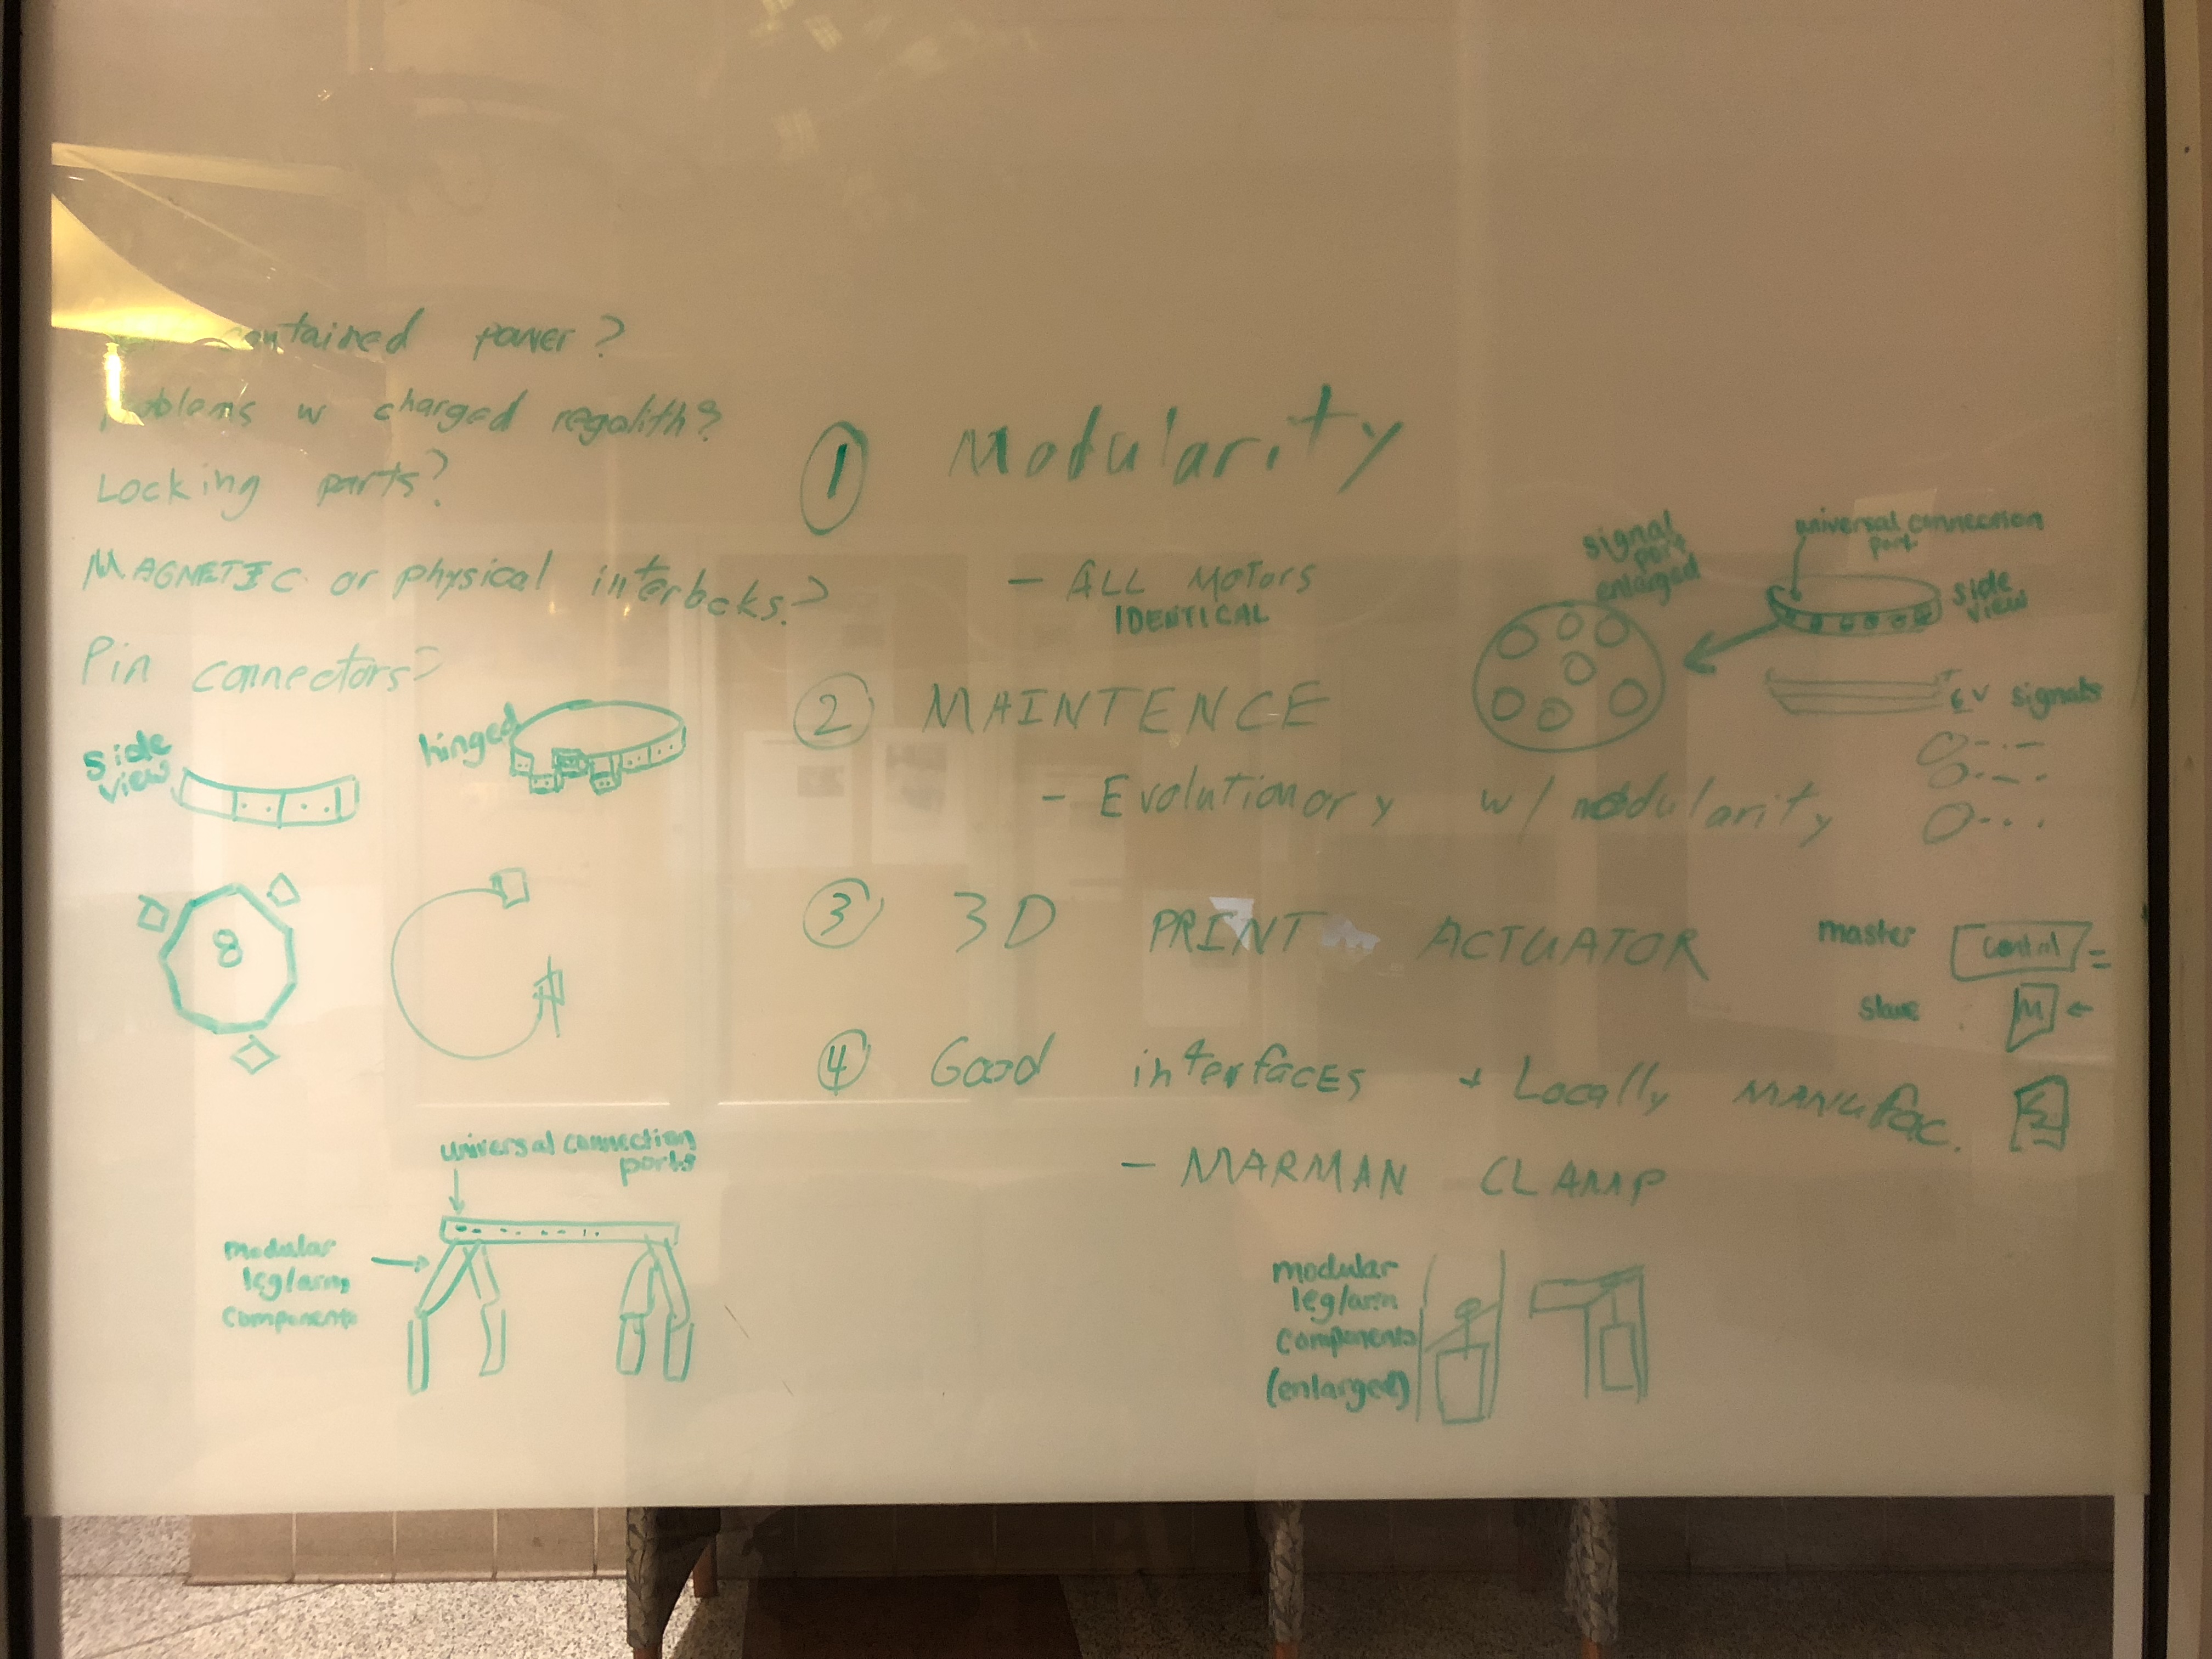 contained power?
Problems w charged regolith?
Locking parts?
MAGNETIC or physical interlocks?
Pin connectors?
side
view
hinged
8
universal connection
ports
modular
leg/arm
components
1 Modularity
- ALL MOTORS
IDENTICAL
2 MAINTENCE
- Evolutionary w/ modularity
3 3D PRINT ACTUATOR
4 Good interfaces + Locally MANUfac.
- MARMAN CLAMP
modular
leg/arm
components
(enlarged)
signal
port
enlarged
universal connection
port
side
view
signals
master
control
slave
M